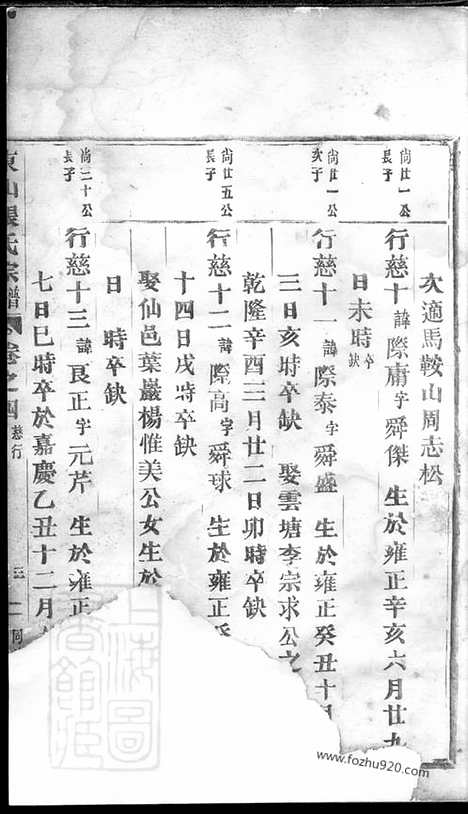 次適馬鞍山周志松
尚廿一公長子
行慈十諱際庸字舜傑 生於雍正辛亥六月廿九
日未時卒缺
尚廿一公次子
行慈十一諱際泰字舜盛 生於雍正癸丑十月
三日亥時卒缺 娶雲塘李宗求公之
乾隆辛酉三月廿二日卯時卒缺
尚廿五公長子
行慈十二諱際高字舜球 生於雍正
十四日戌時卒缺
娶仙邑葉巖楊惟美公女生於
日 時卒缺
尚三十公長子
行慈十三諱艮正字元芹 生於雍正
七日巳時卒於嘉慶乙丑十二月
東山張氏宗譜 卷之四 慈行
www.fozhu920.com